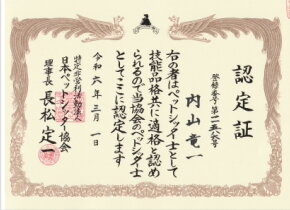 認定証
内山竜一
右の者はペットシッター士として
技能品格共に適格と認め
られるので当協会のペットシッター士
としてここに認定します
令和六年三月一日
特定非営利活動法人
日本ペットシッター協会
理事長 長松定一